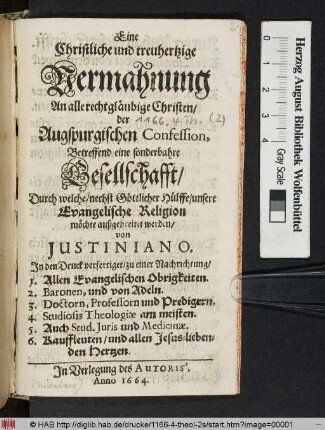 Eine
Christliche und treuhertzige
Vermahnung
An alle rechtgläubige Christen/
der 1166. 4. Th. (2)
Augspurgischen Confession,
Betreffend eine sonderbahre
Gesellschafft/
Durch welche/ nechst Göttlicher Hülffe/ unsere
Evangelische Religion
möchte außgebreitet werden/
von
JUSTINIANO.
In den Druck verfertiget/ zu einer Nachrichtung/
1. Allen Evangelischen Obrigkeiten.
2. Baronen, und von Adeln.
3. Doctorn, Professorn und Predigern.
4. Studiosis Theologiæ am meisten.
5. Auch Stud. Juris und Medicinæ.
6. Kauffleuten/ und allen Jesus-lieben-
den Hertzen.
In Verlegung des AUTORIS,
Anno 1664.
Herzog August Bibliothek Wolfenbüttel
Gray Scale
0
1
2
3
4
© HAB http://diglib.hab.de/drucke/1166-4-theol-2s/start.htm?image=00001